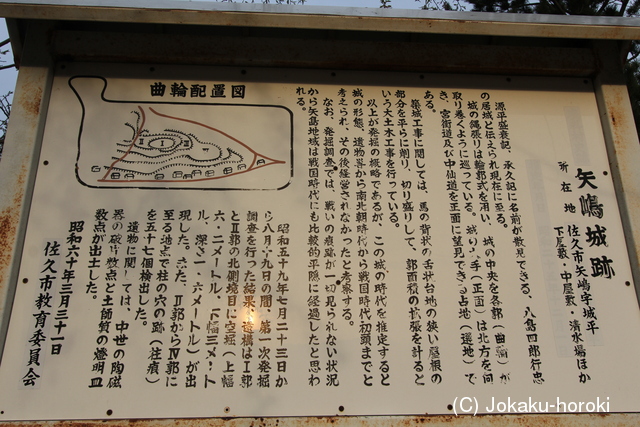 矢嶋城跡
所在地 佐久市矢嶋字城平
下屋敷・中屋敷・清水場ほか
源平盛衰記、承久記に名前が散見できる、八島四郎行忠
の居城と伝えられ現在に至る。
城の縄張りは輪郭式を用い、城の中央を各郭(曲輪)が
取り巻くように巡っている。城の大手(正面)は北方を向
き、宮街道及び中仙道を正面に望見できる占地(選地)で
ある。
築城工事に関しては、馬の背状の舌状台地の狭い屋根の
部分を平らに削り、切り盛りして、郭面積の拡張を計ると
いう大土木工事を行っている。
以上が発掘の概略であるが、この城の時代を推定すると
城の形態、遺物等から南北朝時代から戦国時代初頭までと
考えられ、その後経営されなかったと考察する。
なお、発掘調査では、戦いの痕跡が一切見られない状況
から矢島地域は戦国時代にも比較的平隠に経過したと思わ
れる。
曲輪配置図
I
II
昭和五十九年七月二十三日か
ら八月十九日の間、第一次発掘
調査を行った結果、遺構はI郭
とII郭の北側境目に空堀(上幅
六・二メートル、下幅三メート
ル、深さ一・六メートル)が出
現した。また、II郭からIV郭に
至る地点で柱の穴の跡(柱痕)
を五十七個検出した。
遺物に関しては、中世の陶磁
器の破片数点と土師質の燈明皿
数点が出土した。
昭和六十年三月三十一日
佐久市教育委員会
(C) Jokaku-horoki